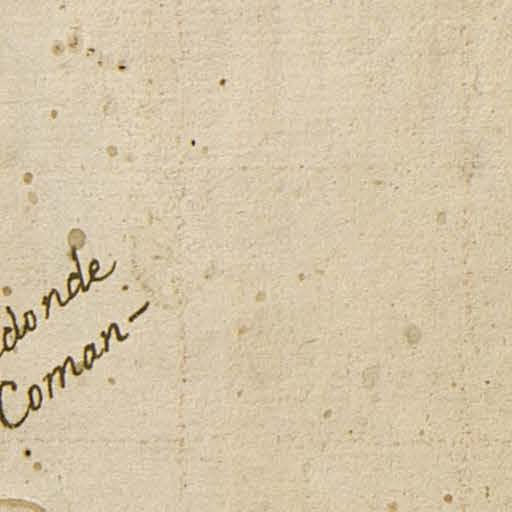 donde
Coman-